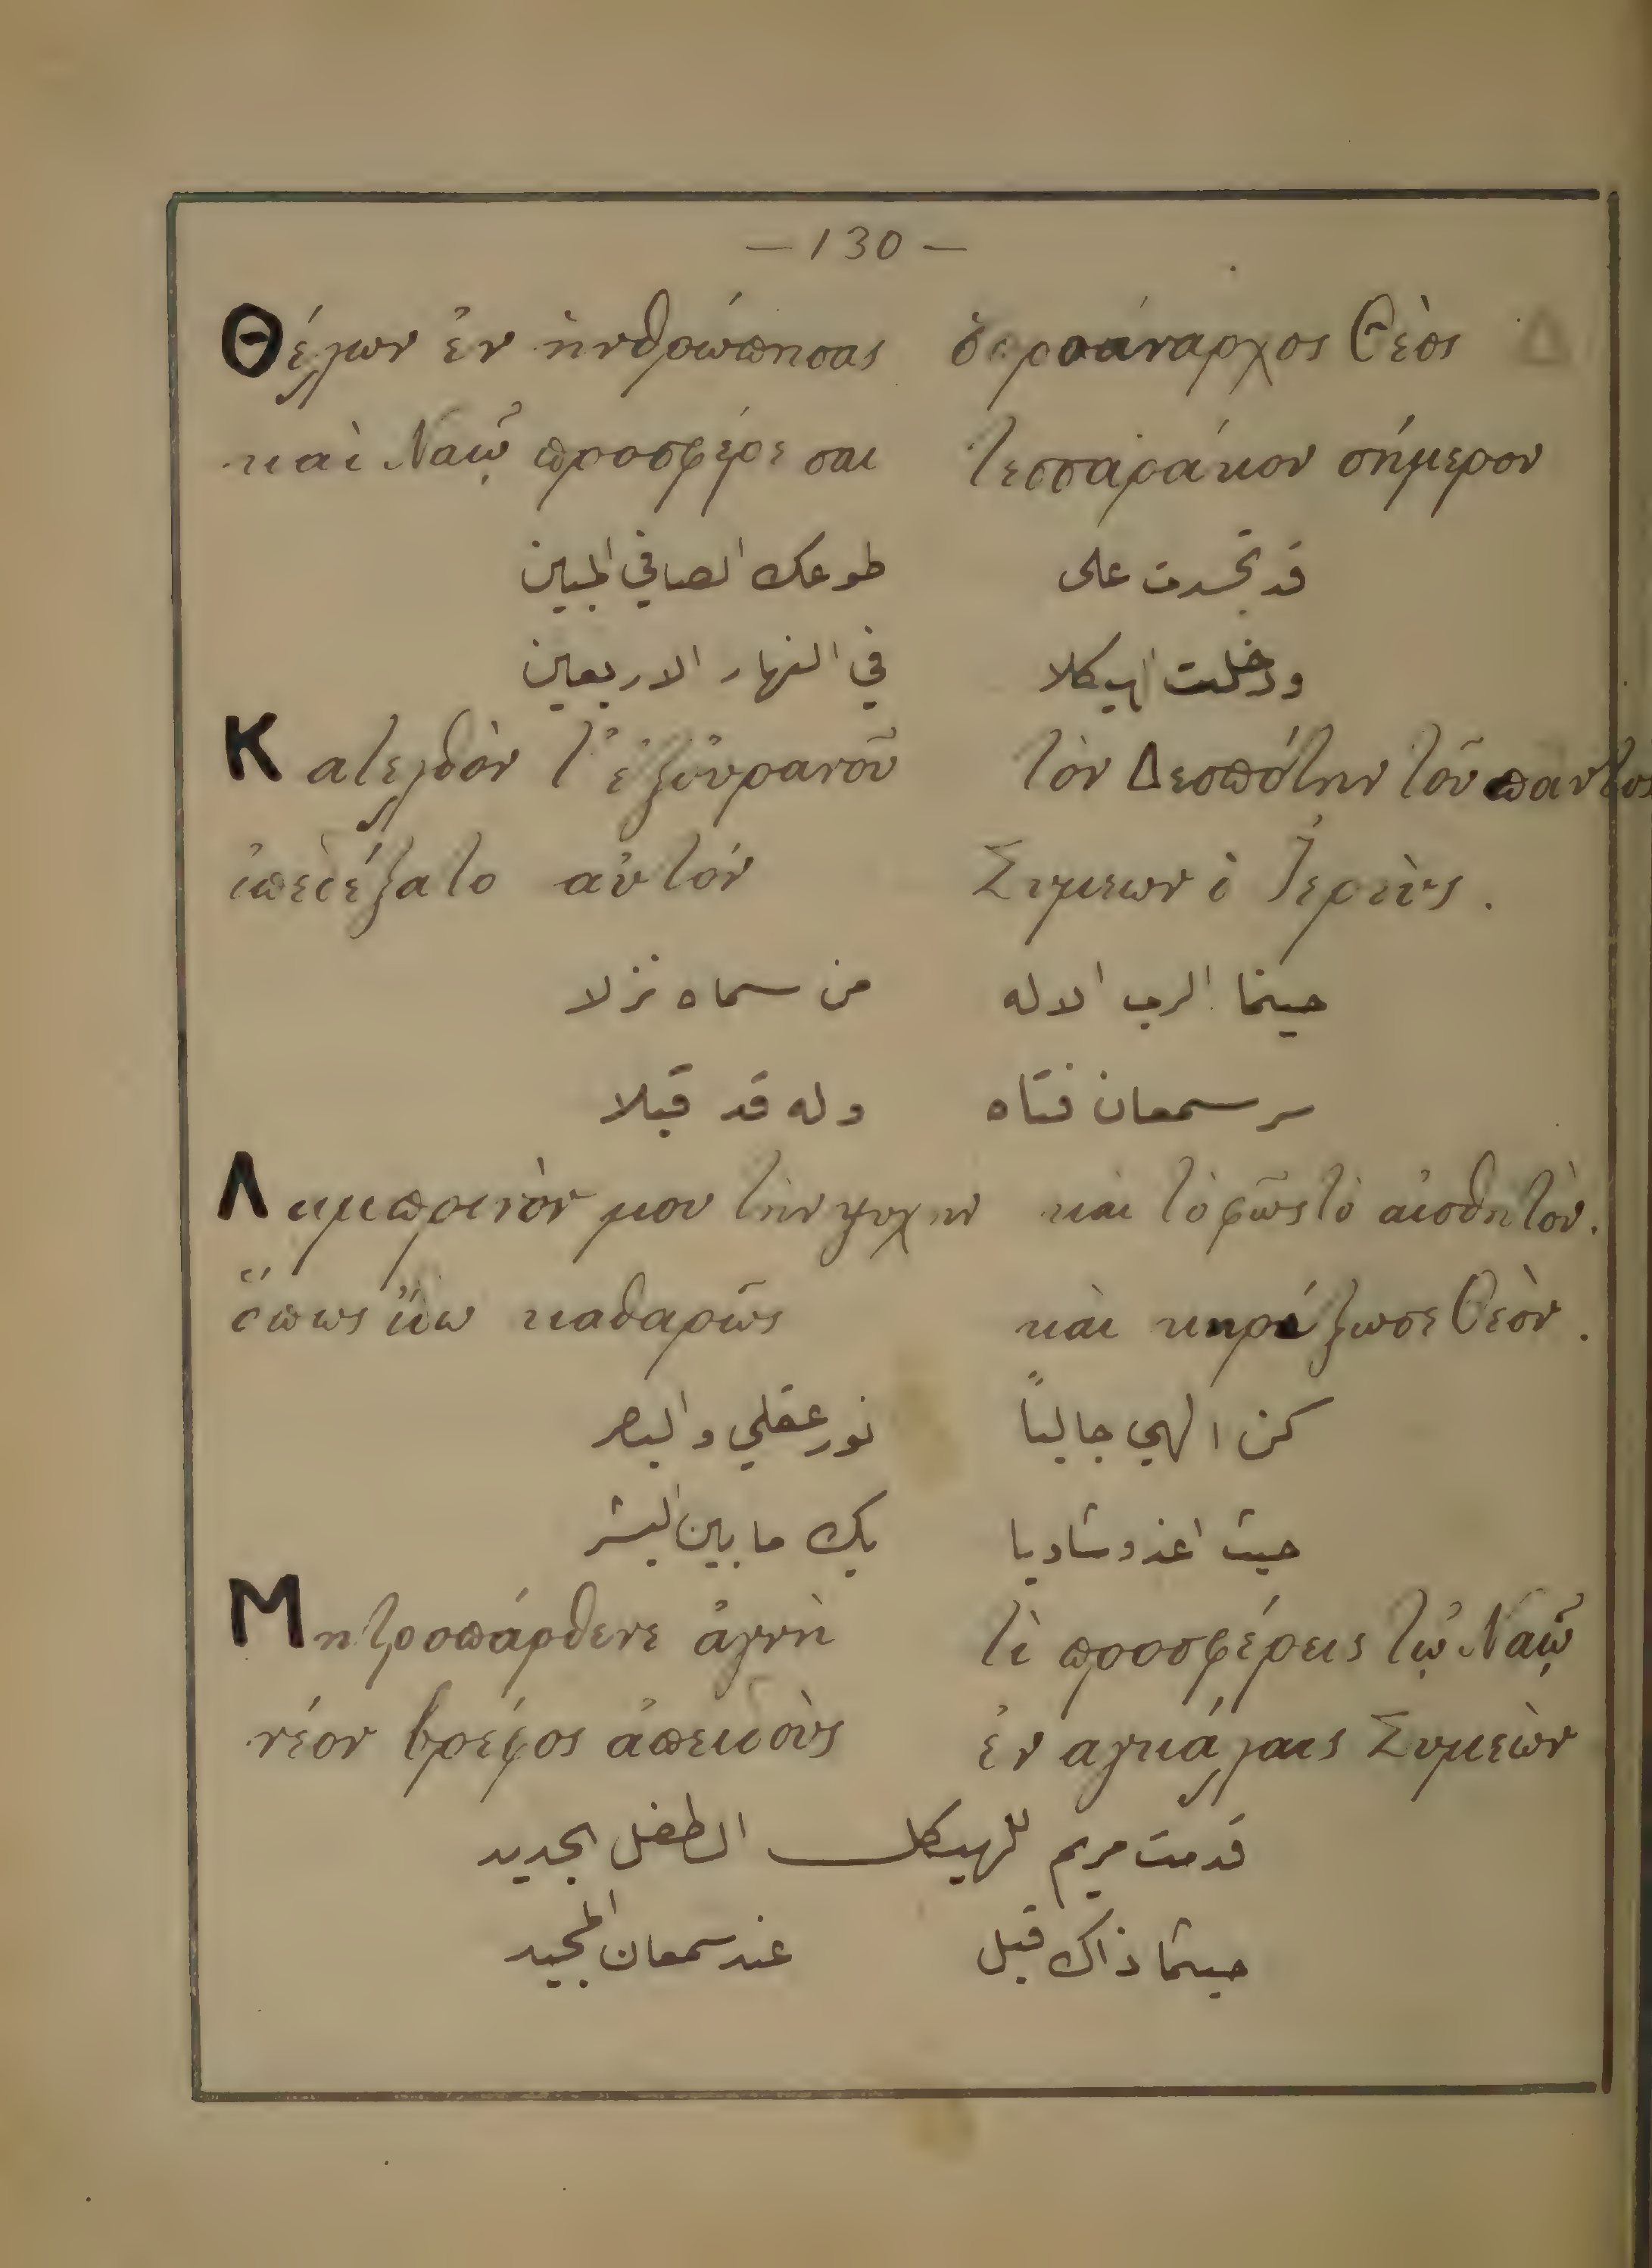 — 130 —
Θέλων ἐν ἠνθρώπησας ὁ προάναρχος Θεὸς
καὶ Ναῷ προσφέρε σαι τεσσαράκον σήμερον
قد تجسدت على طوعك الصافي المبين
ودخلت الهيكلا في النهار الاربعين
Κατελθὸν τ' ἐξ οὐρανοῦ τὸν Δεσπότην τοῦ παντὸς
ὑπεδέξατο αὐτόν Συμεων ὁ Ἱερεὺς .
حينما الرب الاله من سماه نزلا
سر سمعان فتاه وله قد قبلا
Λαμπρινὸν μου τὴν ψυχην καὶ τὸ φῶς τὸ αἰσθητὸν.
ὅπως ἴδω καθαρῶς καὶ κηρύξω σε Θεὸν .
كن الهي جالياً نور عقلي والبصر
حيث اغذو شاديا بك ما بين البشر
Μητροπάρθενε ἁγνὴ τὶ προσφέρεις τῷ Ναῷ
νέον βρέφος ἀπειδοὺς ἐν αγκάλαις Συμεὼν
قدمت مريم للهيكل الطفل الجديد
حيثما ذاك قبل عند سمعان المجيد